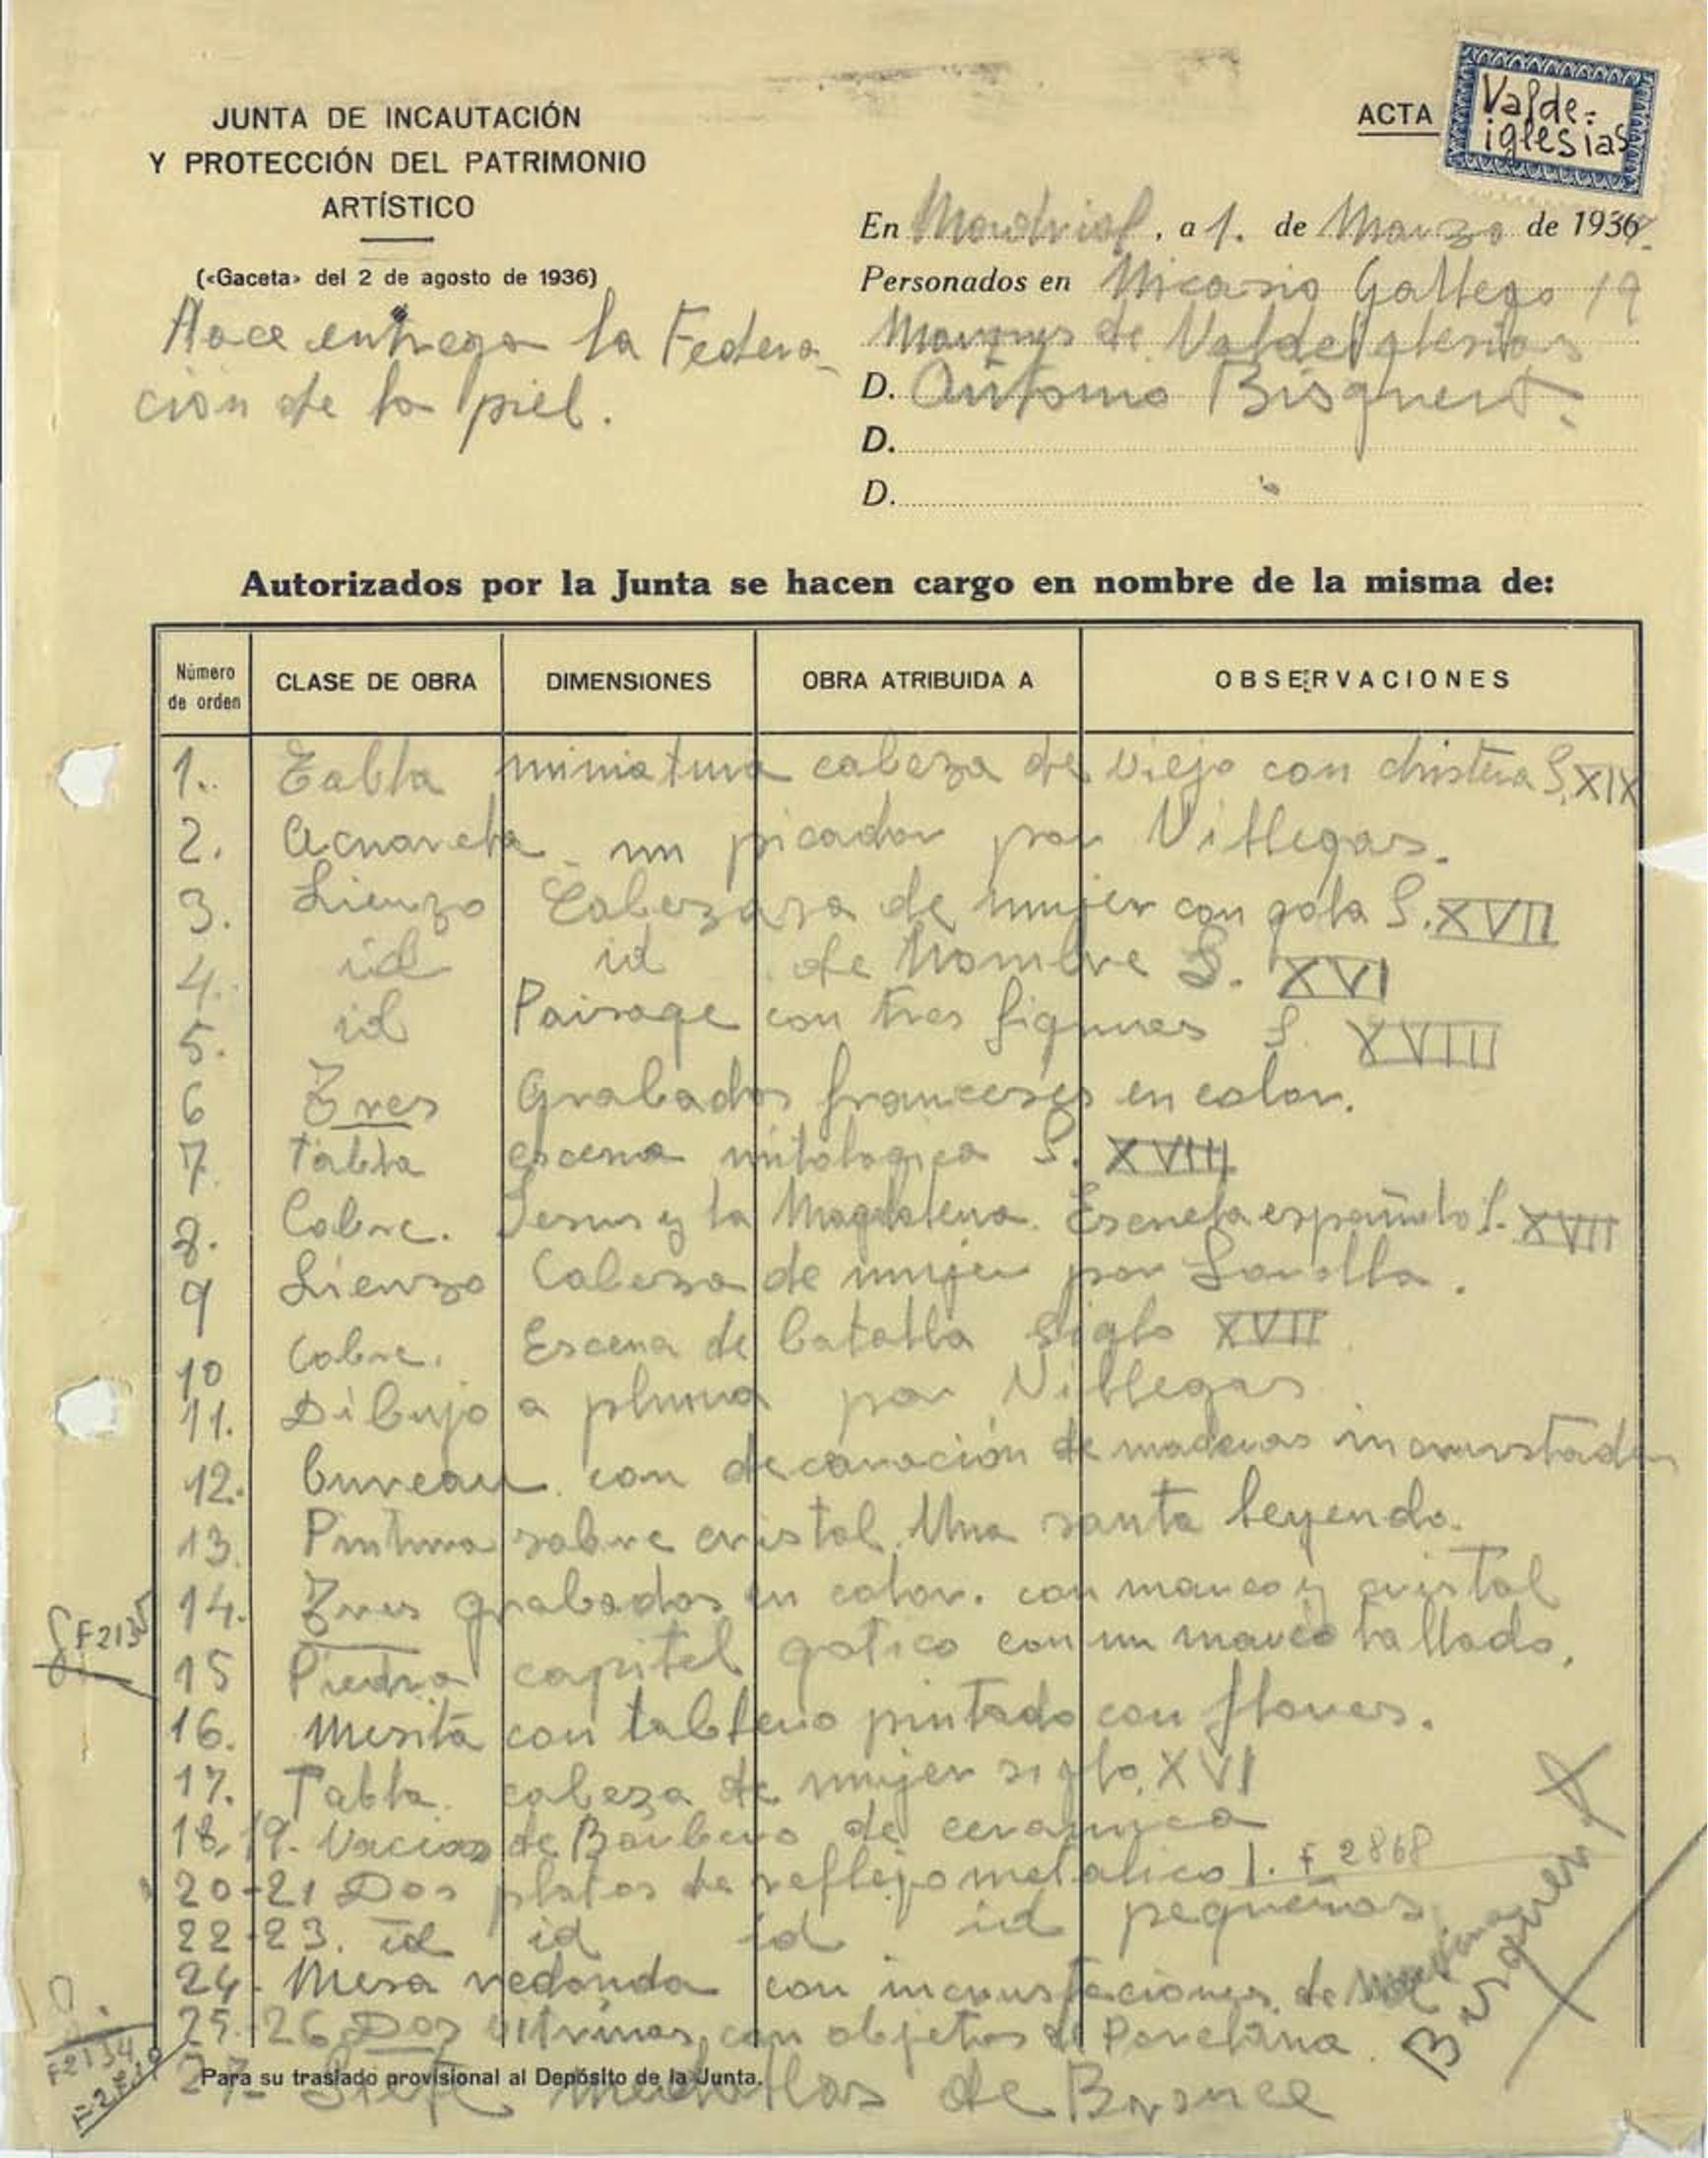 JUNTA DE INCAUTACIÓN
Y PROTECCIÓN DEL PATRIMONIO
ARTÍSTICO
(«Gaceta» del 2 de agosto de 1936)
Hace entrega la Federa-
ción de la piel.
ACTA
Valde-
iglesias
En Madrid, a 1. de Marzo de 1937.
Personados en Nicasio Gallego 19
Marques de Valdeiglesias
D. Antonio Bisquert.
D.
D.
Autorizados por la Junta se hacen cargo en nombre de la misma de:
Número de orden CLASE DE OBRA DIMENSIONES OBRA ATRIBUIDA A OBSERVACIONES
1. Tabla miniatura cabeza de viejo con chistera S. XIX
2. Acuarela - un picador por Villegas.
3. Lienzo Cabeza de mujer con gola S. XVII
4. id id de hombre S. XVI
5. id Paisage con tres figuras S. XVIII
6 Tres Grabados franceses en color.
7. Tabla escena mitologica S. XVIII
8. Cobre. Jesus y la Magdalena. Escuela española S. XVII
9 Lienzo Cabeza de mujer por Sorolla.
10 Cobre. Escena de batalla siglo XVII
11. Dibujo a pluma por Villegas
12. bureau con decoración de maderas incrustadas
13. Pintura sobre cristal. Una santa leyendo.
14. Tres grabados en color. con marco y cristal
F2135
15 Piedra capitel gotico con un marco tallado.
16. Mesita con tablero pintado con flores.
17. Tabla. cabeza de mujer siglo XVI
18. 19. Vacias de Barbero de ceramica
20-21 Dos platos de reflejo metalico F 2868
22-23. id id id id pequeños
24- Mesa redonda con incrustaciones de
25-26 Dos vitrinas con objetos de Porcelana.
F2134
Para su traslado provisional al Depósito de la Junta.
27- Siete medallas de Bronce
Bisquert